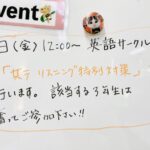 vent
日(金)12:00〜 英語サークル
「女子リスニング特別対策」
行います。該当する3年生は
奮ってご参加下さい!!